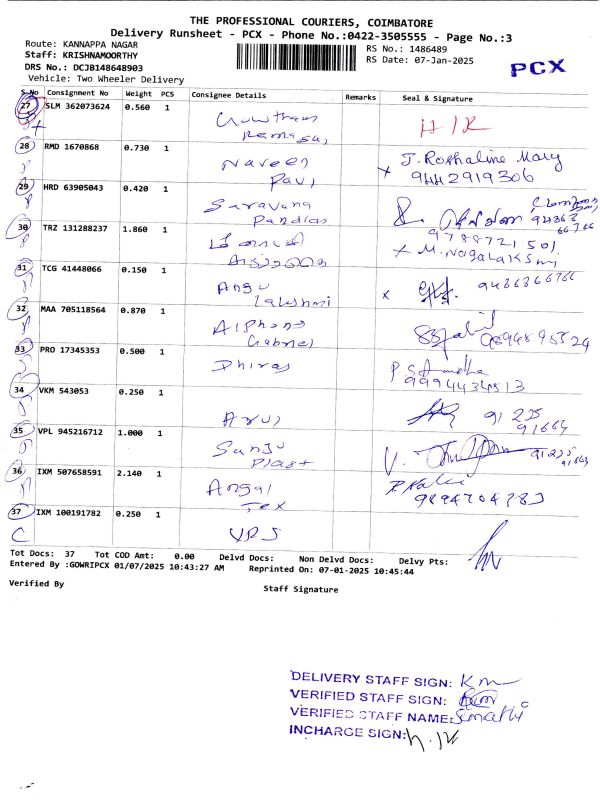 THE PROFESSIONAL COURIERS, COIMBATORE
Delivery Runsheet - PCX - Phone No.:0422-3505555 - Page No.:3
Route: KANNAPPA NAGAR
Staff: KRISHNAMOORTHY
DRS No.: DCJB148648903
Vehicle: Two Wheeler Delivery
RS No.: 1486489
RS Date: 07-Jan-2025
PCX
S.No Consignment No Weight PCS Consignee Details Remarks Seal & Signature
27 SLM 362073624 0.560 1 Gowtham
H/R
28 RMD 1670868 0.730 1 Naveen Pavi
J. Roshaline Mary
9442919306
29 HRD 63905043 0.420 1 Saravana Pandian
30 TRZ 131288237 1.860 1
9788721501
M. Nagalakshmi
31 TCG 41448066 0.150 1 Angu Lakshmi
9486366766
32 MAA 705118564 0.870 1 Alphons Gabriel
9894895524
33 PRO 17345353 0.500 1 Dhiras
34 VKM 543053 0.250 1 Arul
91235
91664
35 VPL 945216712 1.000 1 Sanju Plast
36 IXM 507658591 2.140 1 Angal Tex
37 IXM 100191782 0.250 1 VPS
C
Tot Docs: 37 Tot COD Amt: 0.00 Delvd Docs: Non Delvd Docs: Delvy Pts:
Entered By :GOWRIPCX 01/07/2025 10:43:27 AM Reprinted On: 07-01-2025 10:45:44
Verified By
Staff Signature
DELIVERY STAFF SIGN:
VERIFIED STAFF SIGN:
VERIFIED STAFF NAME:
INCHARGE SIGN: